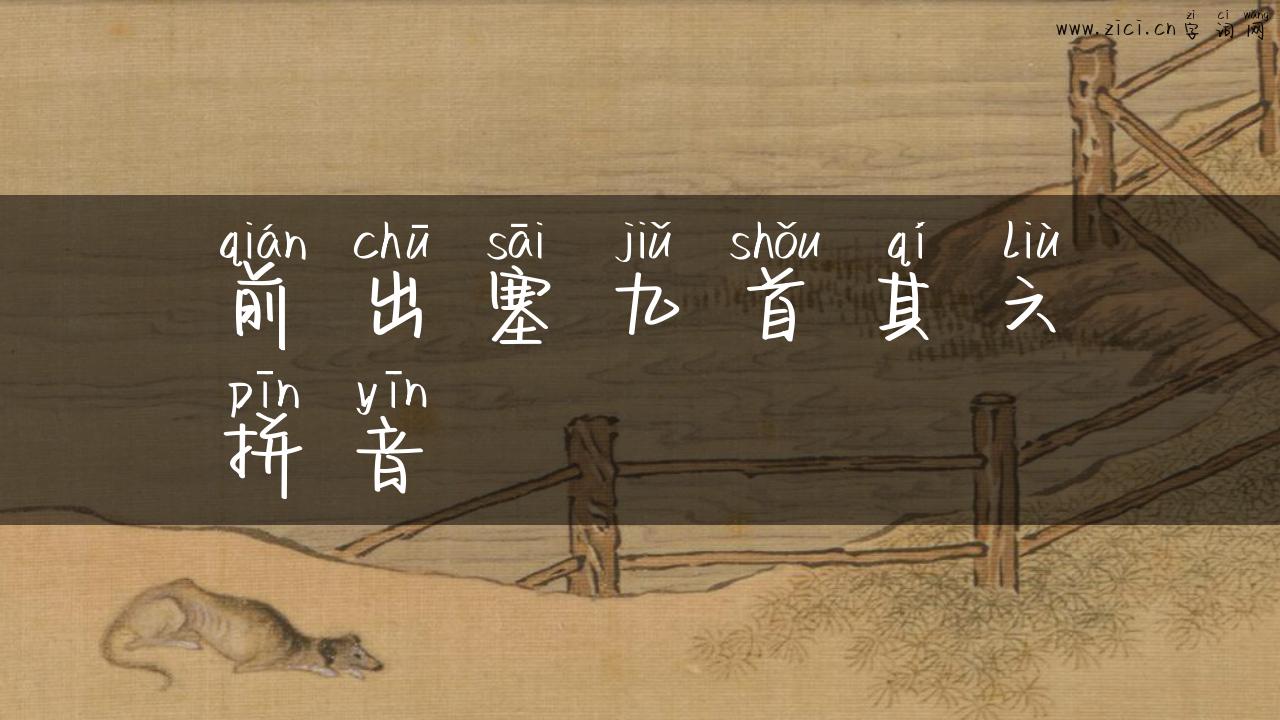 zì cí wǎng
www.zici.cn 字词网
qián chū sāi jiǔ shǒu qí liù
前出塞九首其六
pīn yīn
拼音